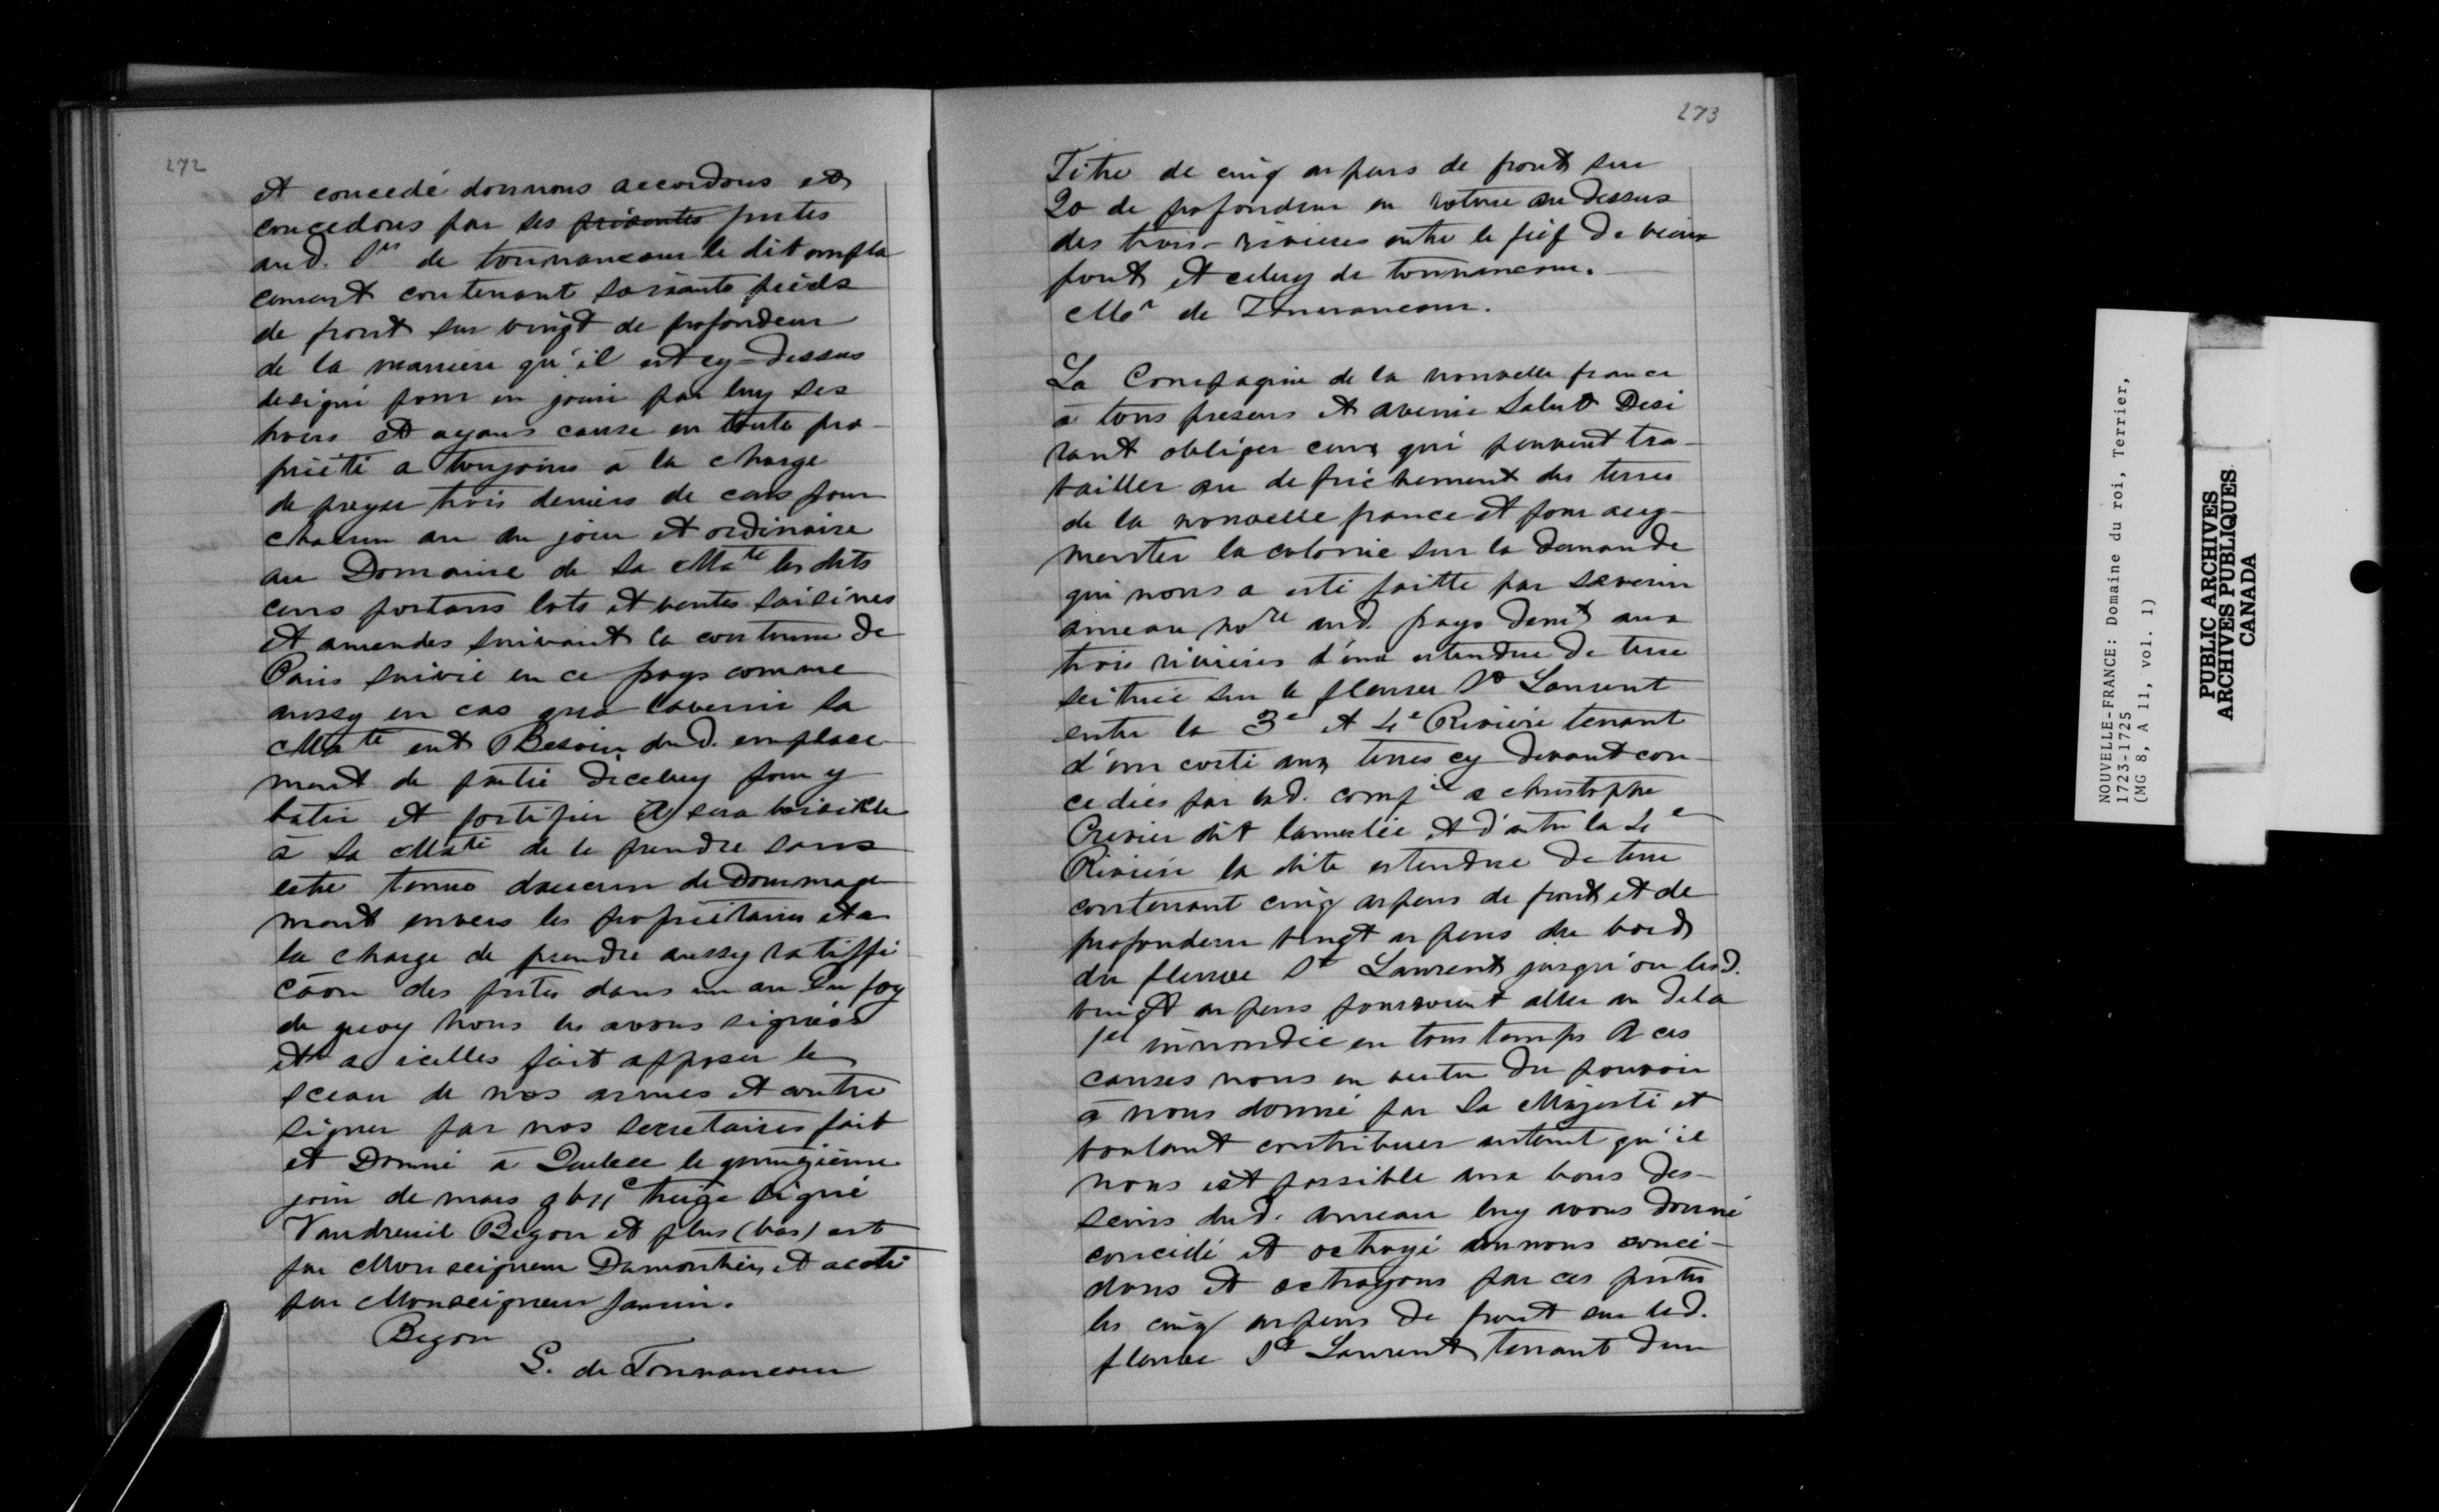 272
et concedé donnons accordons et
concedons par ses présentes pntes
aud. Sr de tonnancour le dit empla
cement contenant soixante pieds
de front sur vingt de profondeur
de la maniere qu'il est cy-dessus
designé pour en jouir par luy ses
hoirs et ayans cause en toute pro-
priété a toujours a la charge
de payer trois deniers de cens pour
chacun an au jour et ordinaire
au Domaine de Sa Mate les dits
cens portans lots et ventes saisines
et amendes suivant la coutume de
Paris suivie en ce pays comme
aussy en cas que lavenir Sa
Mate eut Besoin dud. emplace
ment de partie diceluy pour y
batir et fortifier Il sera loisible
à Sa Mate de le prendre sans
estre tenue daucun dedommage
ment envers les propriétaires et a
la charge de prendre aussy ratiffi
caon des pntes dans un an En foy
de quoy nous les avons signées
et a icelles fait apposer le
sceau de nos armes et contre
signer par nos secretaires fait
et Donné à Quebec le quinzième
jour de mars gbiic treize signé
Vaudreuil Begon et plus (bas) est
par Monseigneur Damonthier et a coté
par Monseigneur Jannin.
Begon
G. de Tonnancour
273
Titre de cinq arpens de front sur
20 de profondeur en roture au dessus
des trois-rivieres entre le fief de vieux
pont et celuy de tonnancour.
Mor de Tonnancour.
La Compagnie de la nouvelle france
à tous presens et avenir Salut Desi
rant obliger ceux qui peuvent tra-
vailler au defrichement des terres
de la nouvelle france et pour aug-
menter la colonie sur la demande
qui nous a esté faitte par severin
ameau nore aud. pays demt aux
trois rivieres d'une estendue de terre
scituée sur le fleuve St Laurent
entre la 3e et 4e Riviere tenant
d'un costé aux terres cy devant con-
cedées par lad. compie a christophe
Crevier dit lameslée et d'autre la 4e
Riviere la dite estendue de terre
contenant cinq arpens de front et de
profondeur vingt arpens du bord
du fleuve St Laurent jusqu'ou lesd.
vingt arpens pourroient aller au dela
innondée en tous temps A ces
causes nous en vertu du pouvoir
à nous donné par Sa Majesté et
voulant contribuer autant qu'il
nous est possible aux bons des-
seins dud. ameau luy avons donné
concédé et octroyé donnons concé-
dons et octroyons par ces pntes
les cinq arpens de front sur led.
fleuve St Laurent tenant dun
NOUVELLE-FRANCE: Domaine du roi, Terrier,
1723-1725
(MG 8, A 11, vol. 1)
PUBLIC ARCHIVES
ARCHIVES PUBLIQUES
CANADA